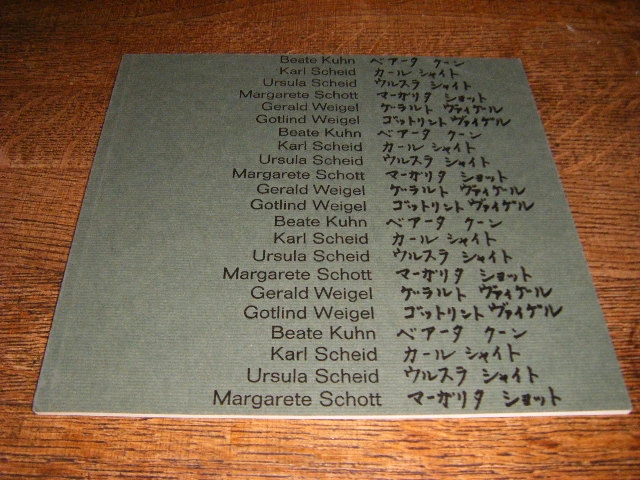 Beate Kuhn ベアータ クーン
Karl Scheid カール シャイト
Ursula Scheid ウルスラ シャイト
Margarete Schott マーガリタ ショット
Gerald Weigel ゲラルト ヴァイゲル
Gotlind Weigel ゴットリント ヴァイゲル
Beate Kuhn ベアータ クーン
Karl Scheid カール シャイト
Ursula Scheid ウルスラ シャイト
Margarete Schott マーガリタ ショット
Gerald Weigel ゲラルト ヴァイゲル
Gotlind Weigel ゴットリント ヴァイゲル
Beate Kuhn ベアータ クーン
Karl Scheid カール シャイト
Ursula Scheid ウルスラ シャイト
Margarete Schott マーガリタ ショット
Gerald Weigel ゲラルト ヴァイゲル
Gotlind Weigel ゴットリント ヴァイゲル
Beate Kuhn ベアータ クーン
Karl Scheid カール シャイト
Ursula Scheid ウルスラ シャイト
Margarete Schott マーガリタ ショット